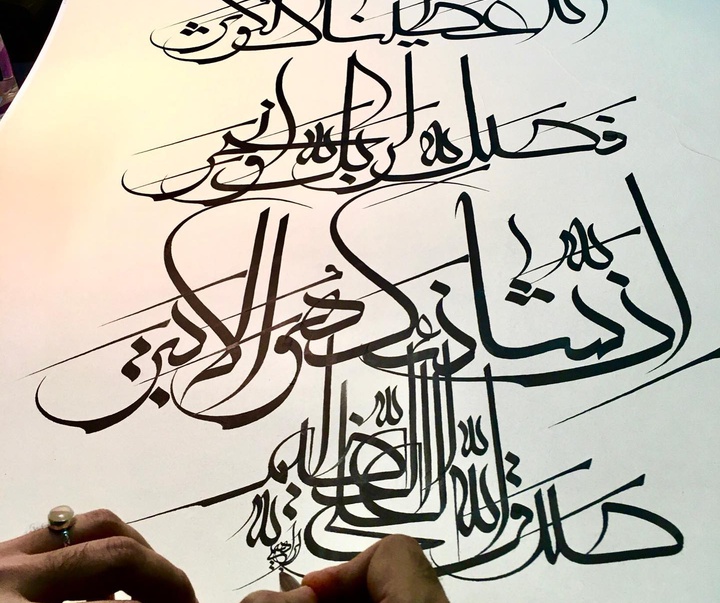 انا اعطيناك الكوثر
فصل لربك وانحر
ان شانئك هُو الابتر
صدق الله العلي العظيم